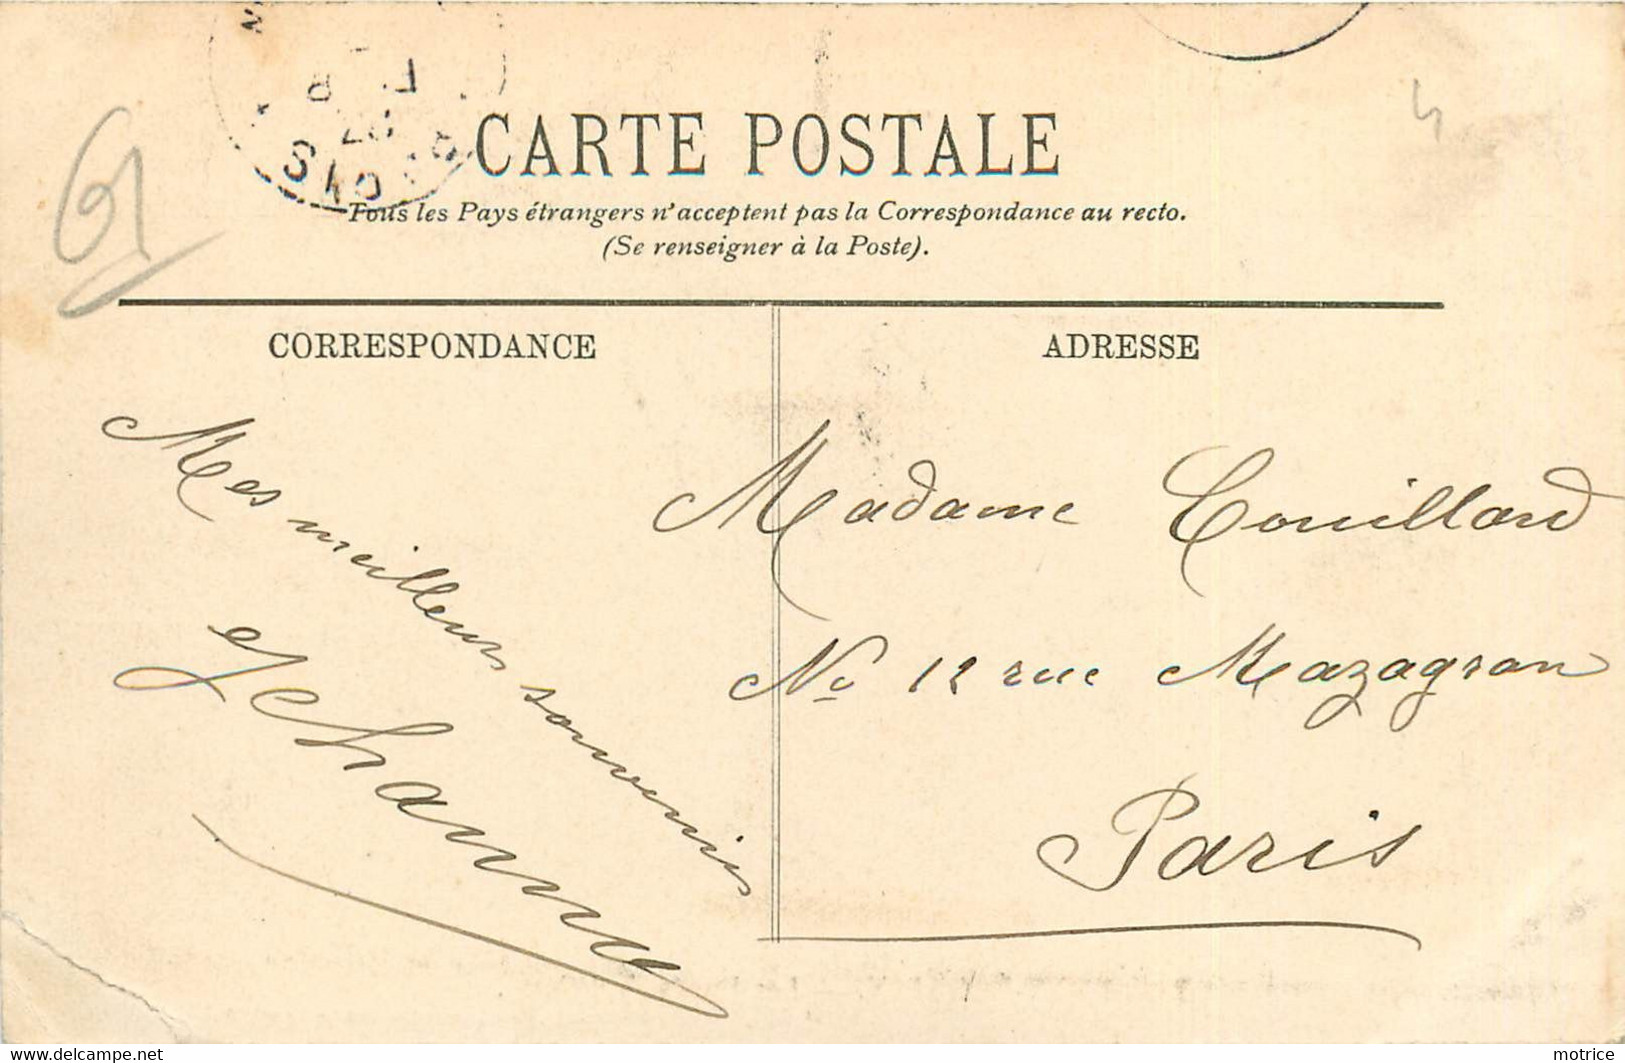 CARTE POSTALE
Tous les Pays étrangers n'acceptent pas la Correspondance au recto.
(Se renseigner à la Poste).
CORRESPONDANCE
ADRESSE
Mes meilleurs souvenirs
Madame Couillard
No 12 rue Mazagran
Paris
delcampe.net
motrice